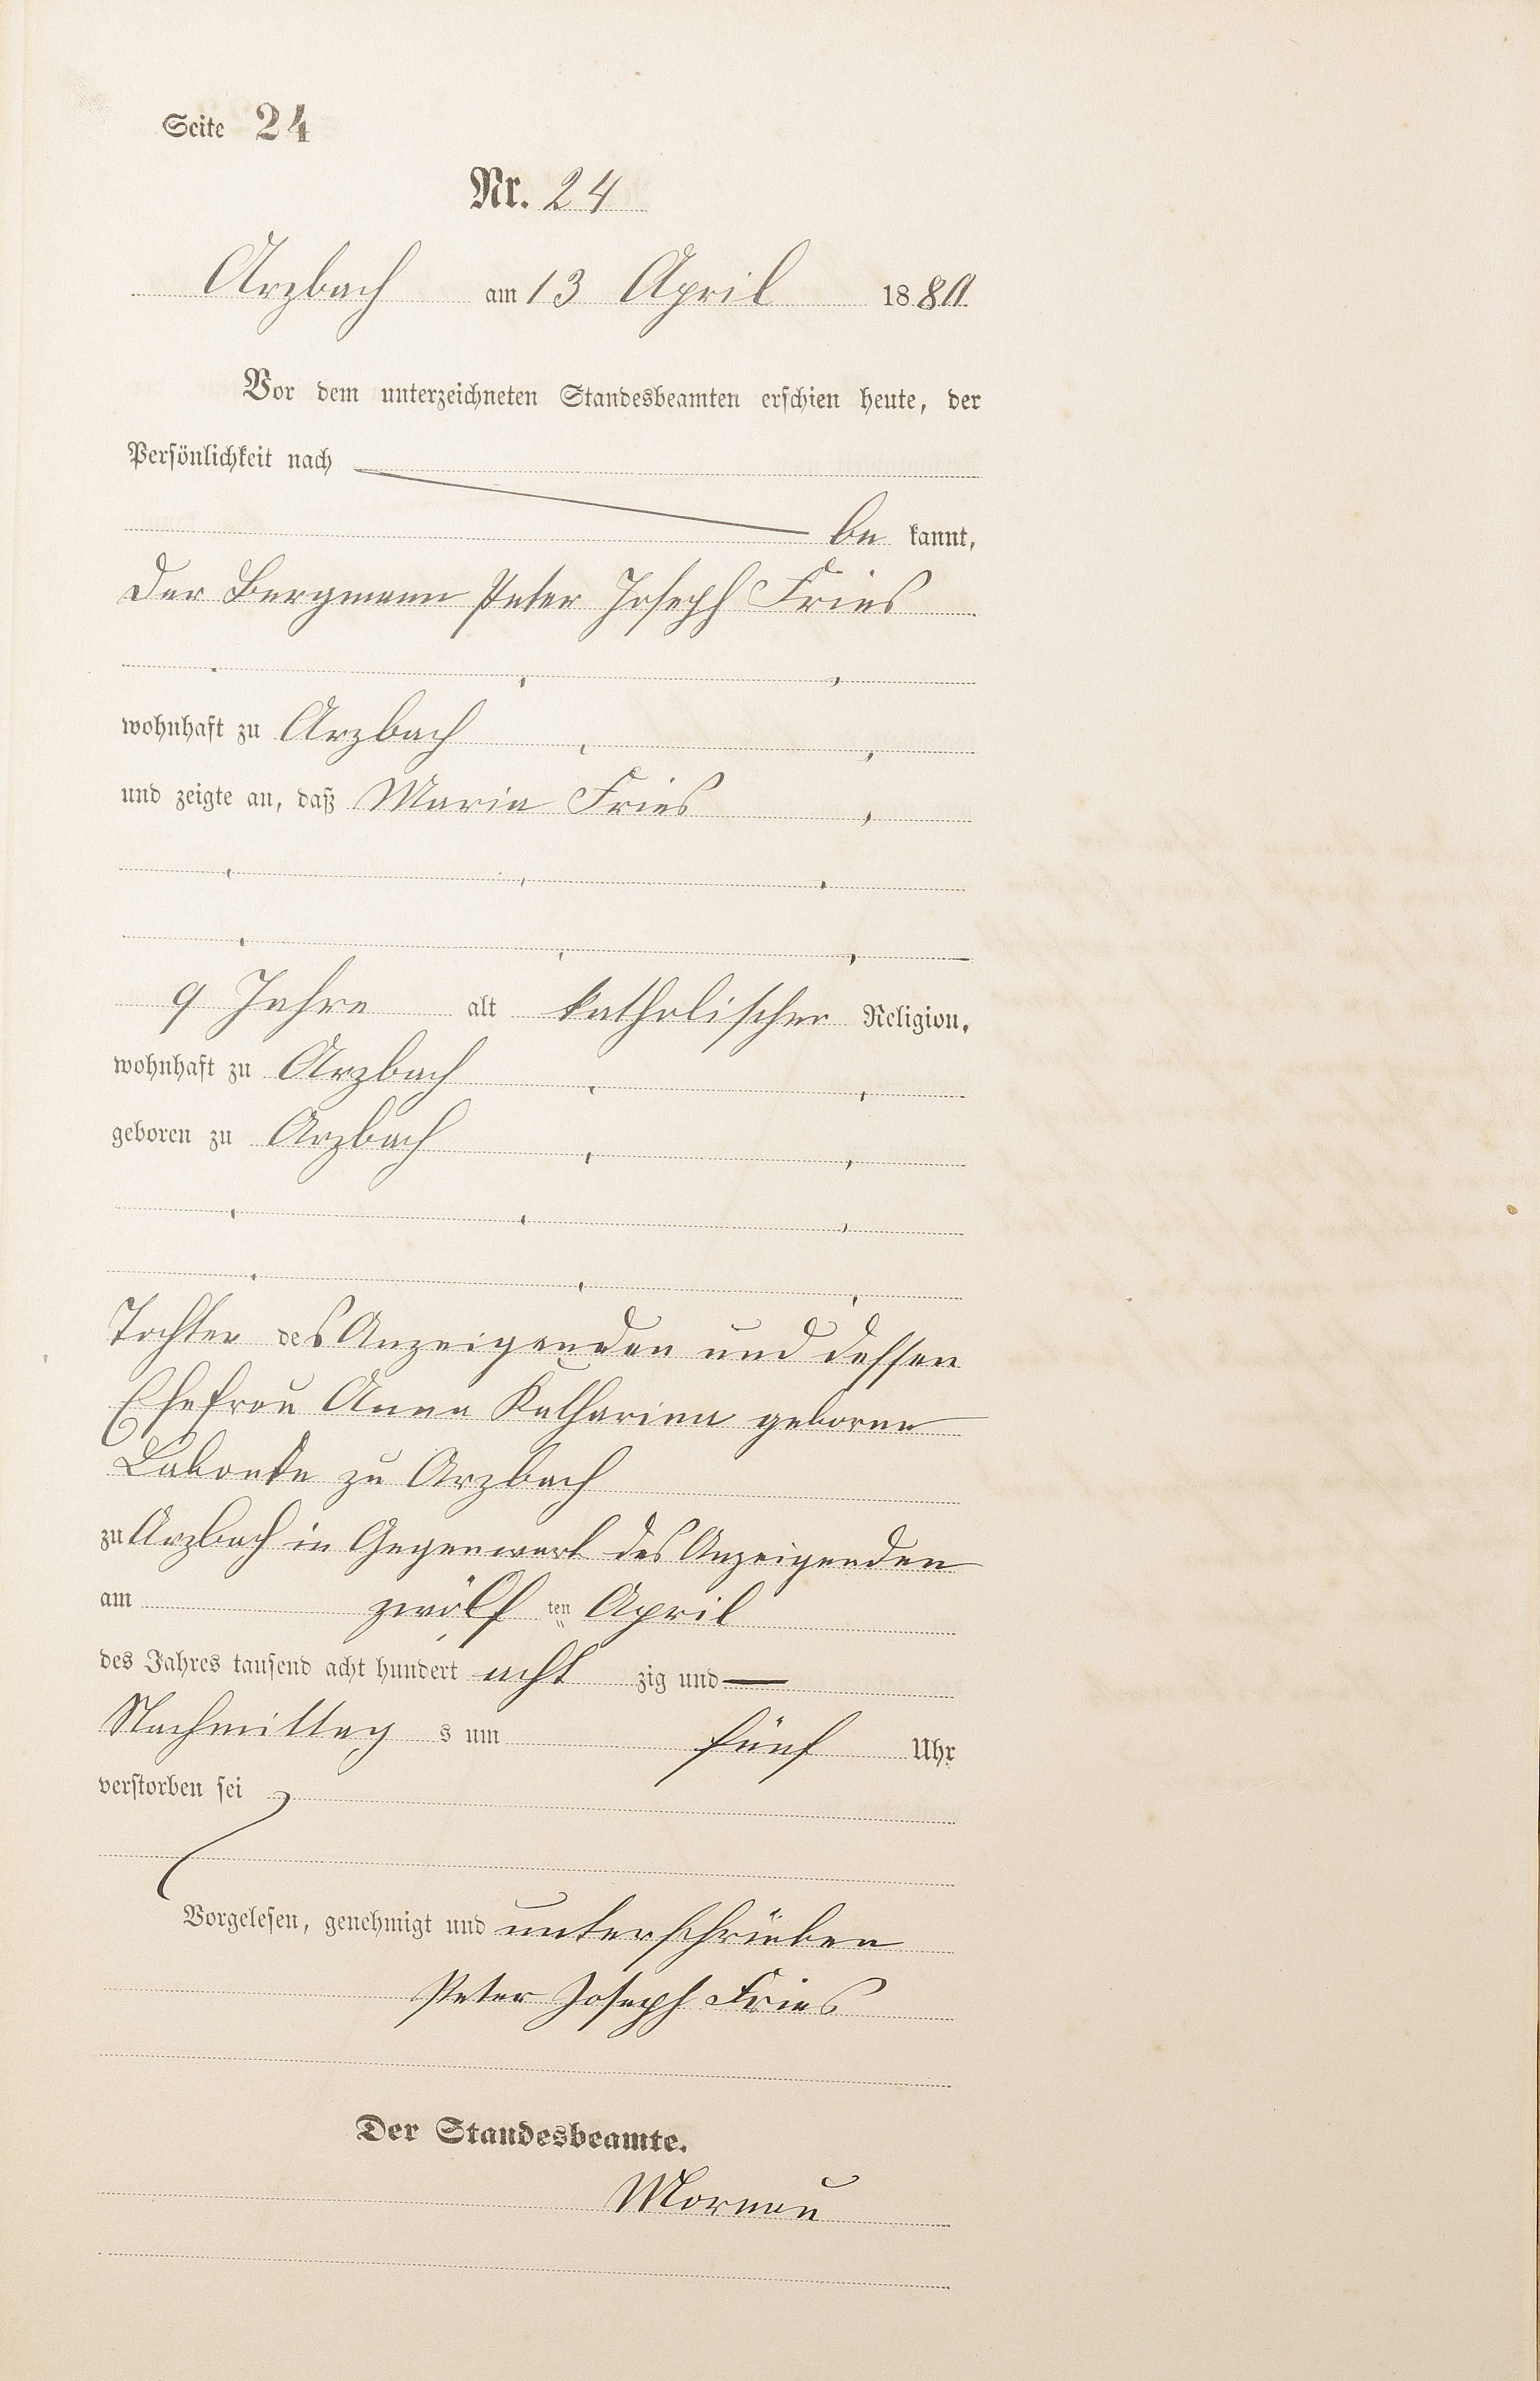 Seite 24
Nr. 24
Arzbach am 13 April 1880.
Vor dem unterzeichneten Standesbeamten erschien heute, der
Persönlichkeit nach
be kannt,
der Bergmann Peter Joseph Fries
wohnhaft zu Arzbach
und zeigte an, daß Maria Fries
9 Jahre alt katholischer Religion,
wohnhaft zu Arzbach
geboren zu Arzbach
Tochter des Anzeigenden und dessen
Ehefrau Anna Katharina geborne
Labonte zu Arzbach
zu Arzbach in Gegenwart des Anzeigenden
am zwölf ten April
des Jahres tausend acht hundert acht zig und —
Nachmittag s um fünf Uhr
verstorben sei
Vorgelesen, genehmigt und unterschrieben
Peter Joseph Fries
Der Standesbeamte.
Mornau